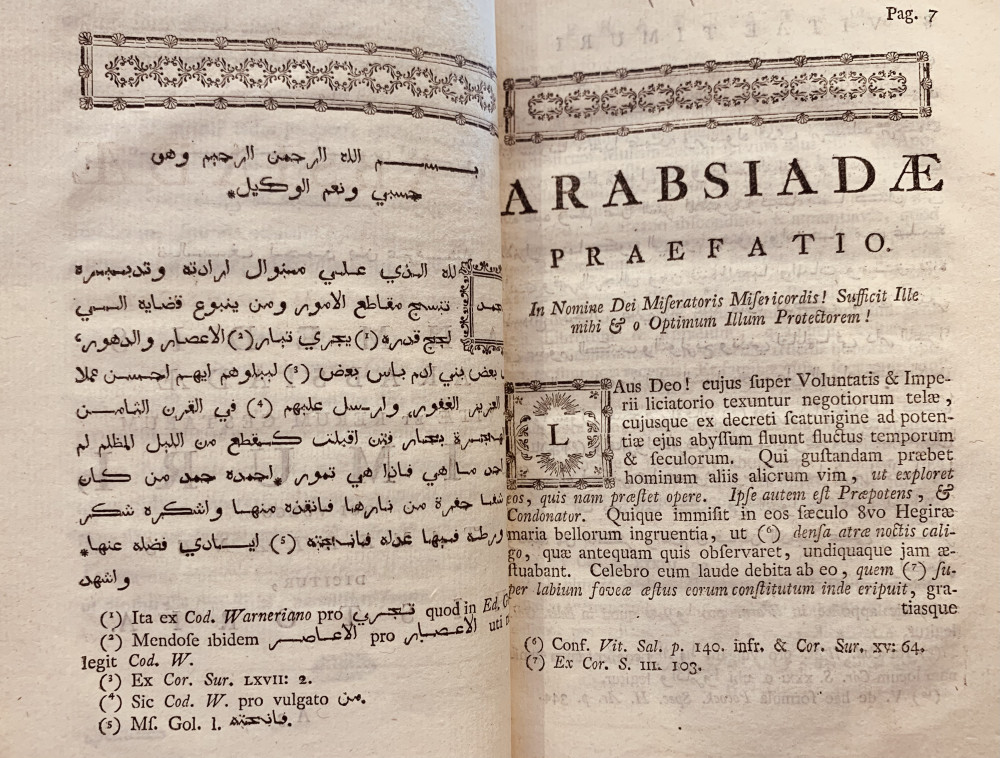 بسم الله الرحمن الرحيم وهو
حسبي ونعم الوكيل*
حمد لله الذي علي منوال ارادته وتدبيره
تنسج مقاطع الامور ومن ينبوع قضايه الي
لجج قدره (¹) يجري تيار (²) الاعصار والدهور،
بعض بني ادم باس بعض (³) ليبلوهم ايهم احسن عملا
العزيز الغفور، وارسل عليهم (⁴) في القرن الثامن
بحار فتن اقبلت كقطع من الليل المظلم لم
ما هي فاذا هي تمور *احمده حمد من كان
شفا حفرة من نارها فانقذه منها واشكره شكر
ورطة فيها عدله (⁵) ايادي فضله عنها*
واشهد
(¹) Ita ex Cod. Warneriano pro تجري quod in Ed.
(²) Mendose ibidem الاعاصر pro الاعصار uti
legit Cod. W.
(³) Ex Cor. Sur. LXVII: 2.
(⁴) Sic Cod. W. pro vulgato من.
(⁵) Ms. Gol. l.
Pag. 7
ARABSIADÆ
PRAEFATIO.
In Nomine Dei Miseratoris Misericordis! Sufficit Ille
mihi & o Optimum Illum Protectorem!
LAus Deo! cujus super Voluntatis & Impe-
rii liciatorio texuntur negotiorum telæ,
cujusque ex decreti scaturigine ad poten-
tiæ ejus abyssum fluunt fluctus temporum
& seculorum. Qui gustandam præbet
hominum aliis alicrum vim, ut exploret
eos, quis nam præstet opere. Ipse autem est Præpotens, &
Condonator. Quique immisit in eos sæculo 8vo Hegiræ
maria bellorum ingruentia, ut (⁶) densa atræ noctis cali-
go, quæ antequam quis observaret, undiquaque jam æ-
stuabant. Celebro eum laude debita ab eo, quem (⁷) su-
per labium foveæ æstus eorum constitutum inde eripuit, gra-
tiasque
(⁶) Conf. Vit. Sal. p. 140. infr. & Cor. Sur. XV: 64.
(⁷) Ex Cor. S. III. 103.